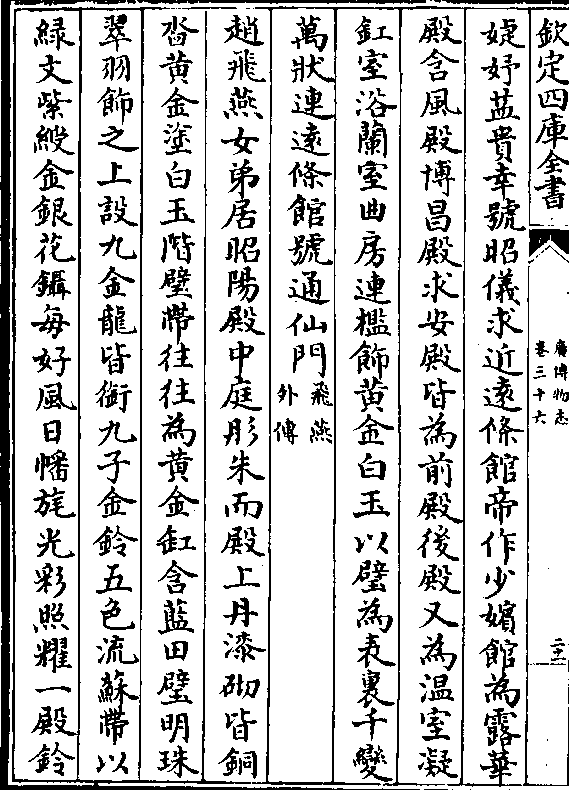 欽定四庫全書
廣博物志
卷三十六
二十一
婕妤益貴幸號昭儀求近遠條館帝作少嬪館為露華
殿含風殿博昌殿求安殿皆為前殿後殿又為温室凝
缸室浴蘭室曲房連檻飾黄金白玉以璧為表裏千變
萬狀連遠條館號通仙門飛燕外傳
趙飛燕女弟居昭陽殿中庭彤朱而殿上丹漆砌皆銅
沓黄金塗白玉階壁帶往往為黄金缸含藍田璧明珠
翠羽飾之上設九金龍皆銜九子金鈴五色流蘇帶以
緑文紫綬金銀花鑷每好風日幡旄光彩照耀一殿鈴